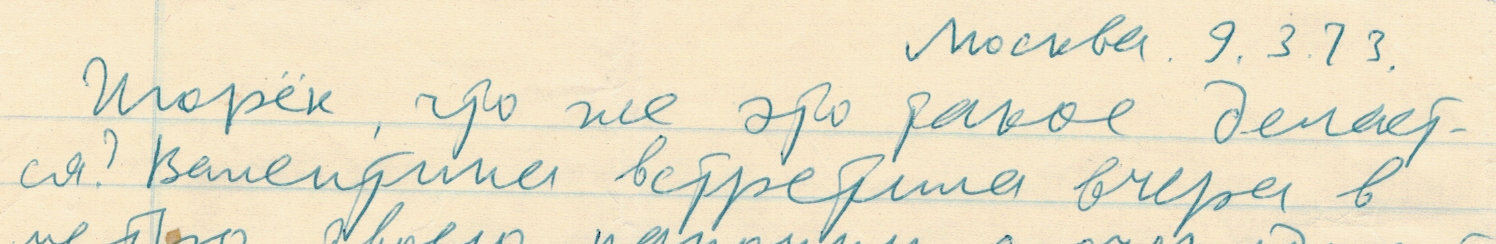 Москва. 9.3.73.
Игорёк, что же это такое делает-
ся? Валентина встретила вчера в
метро твоего